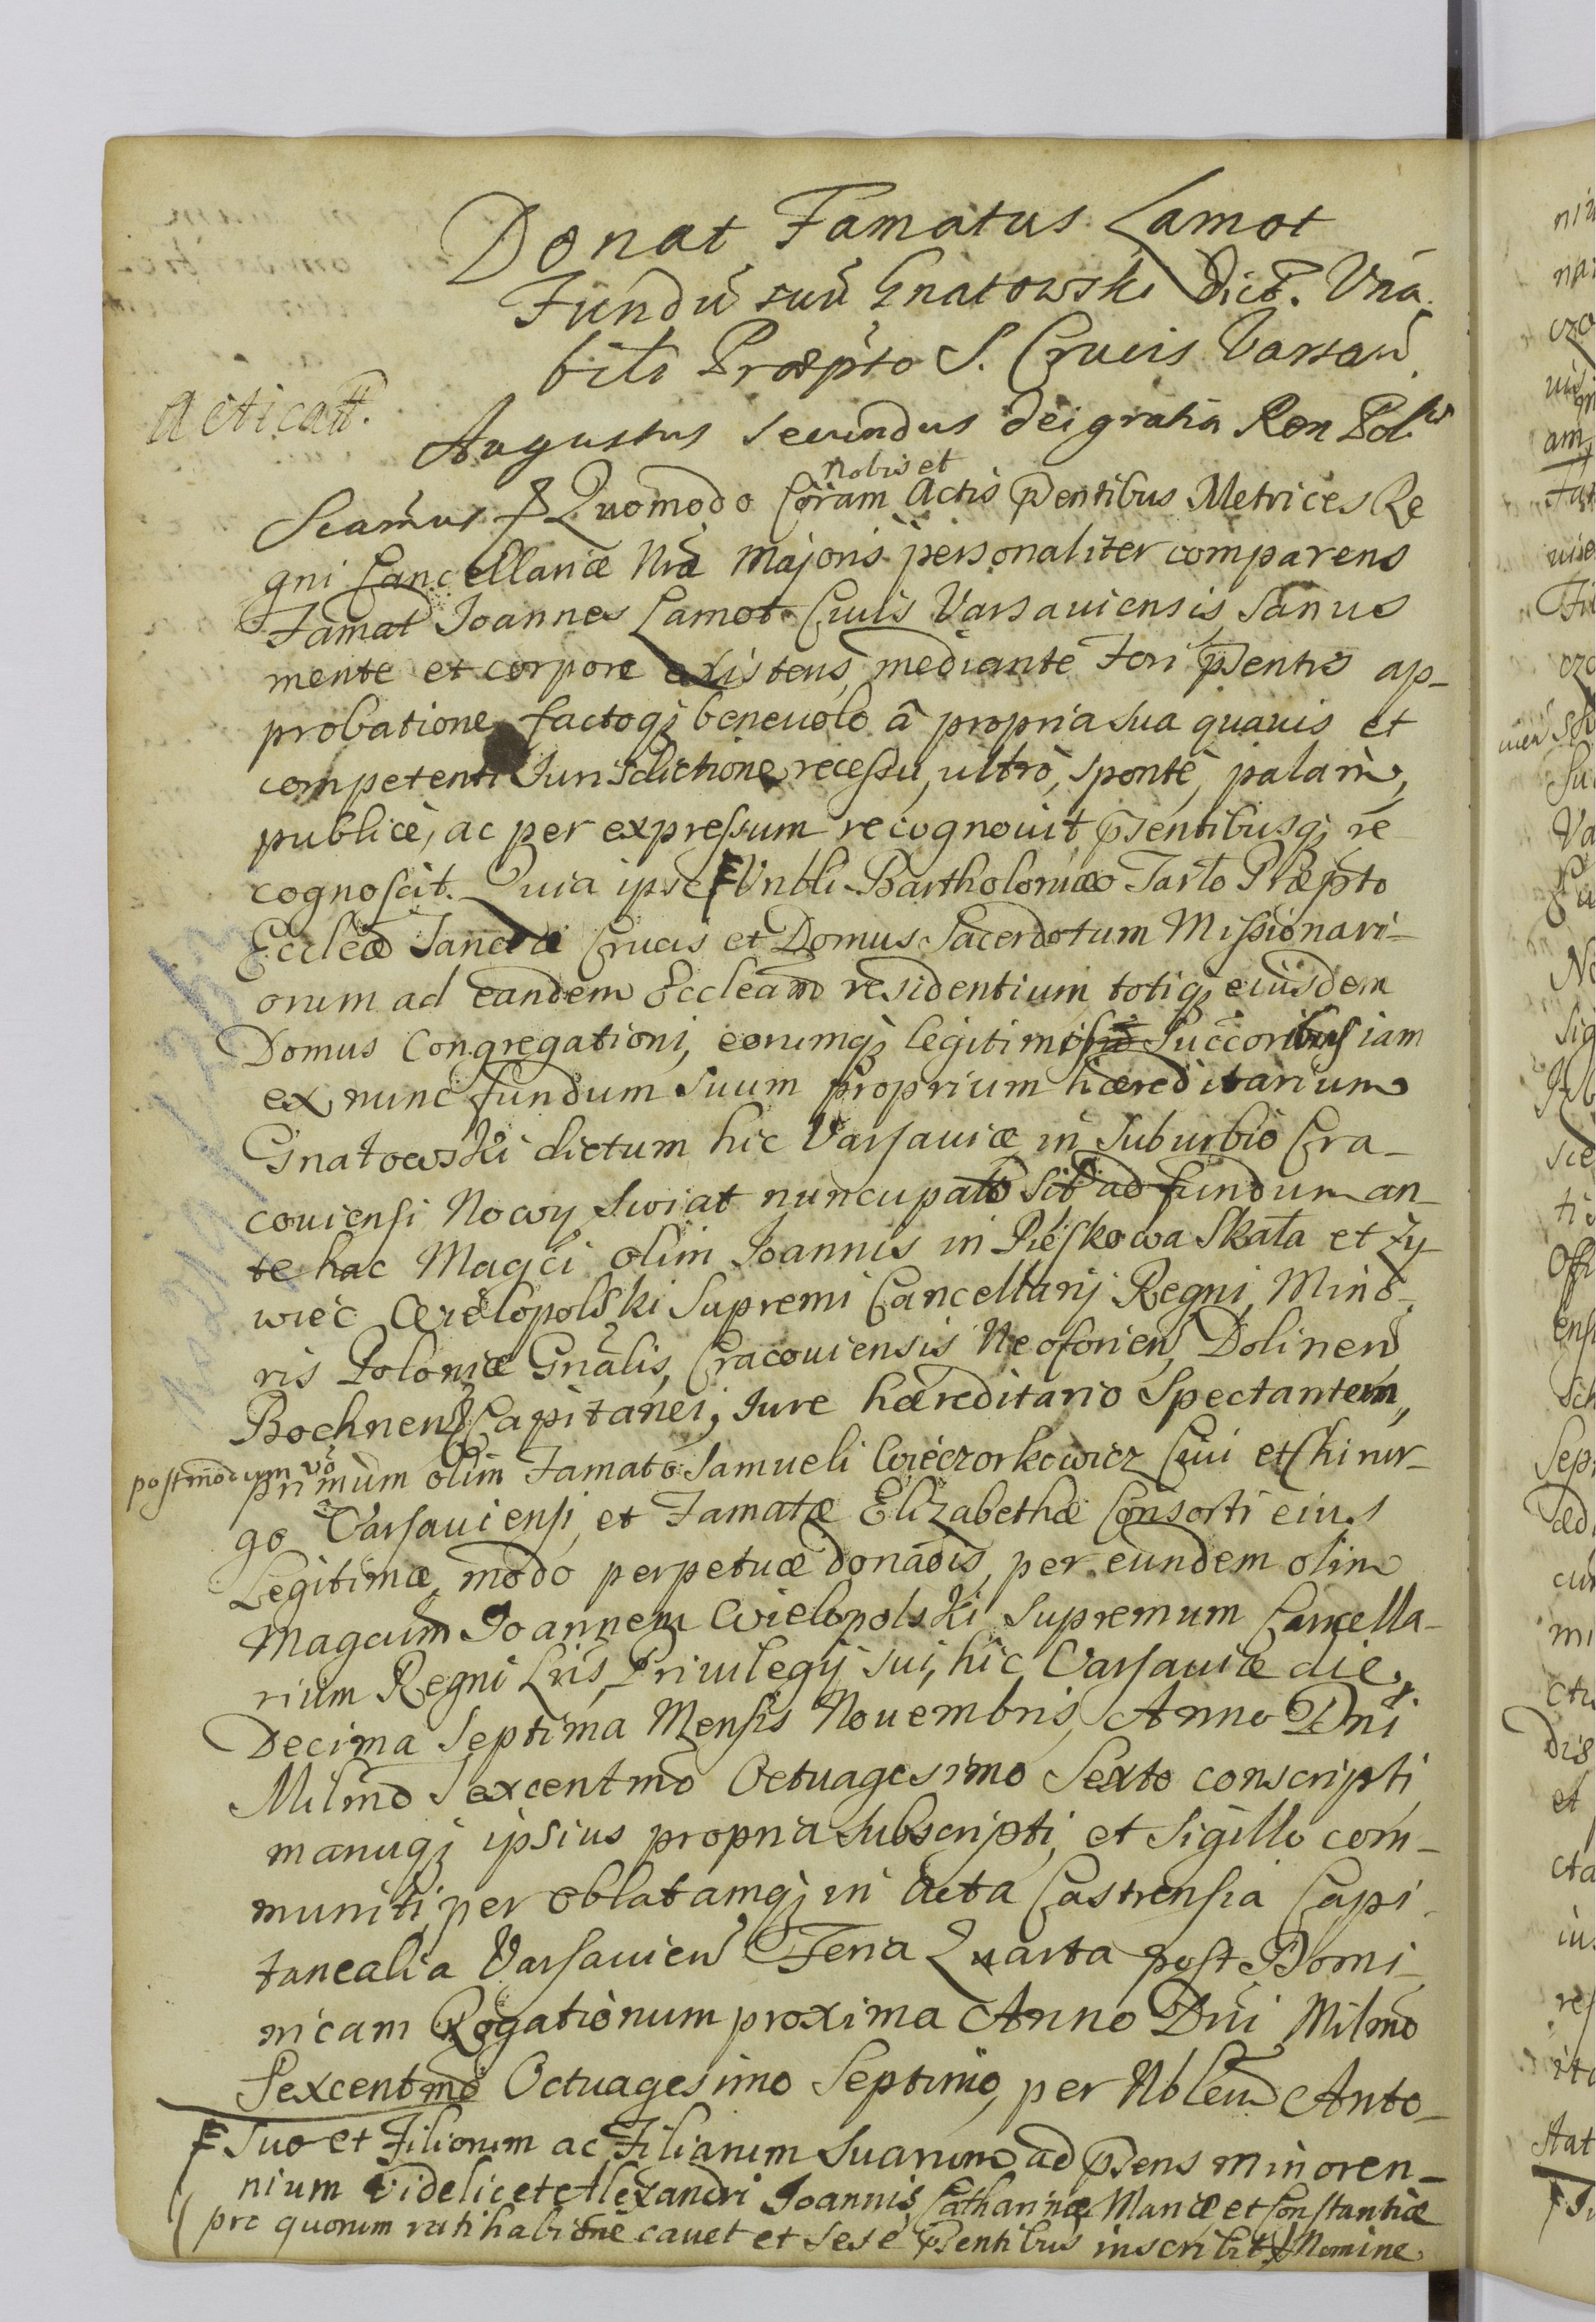 Donat Famatus Lamot
Fundū suū Gnatowski Dict. Vna
bili Præpto S. Crucis Varsaw
Acticatt.
Augustus Secundus Dei gratia Rex Pol
nobis et
Quomodo Coram Actis Pntibus Metrices Re
gni Cancellariæ Nrã Majoris personaliter comparens
Famat Joannes Lamot Civis Varsaviensis Sanus
mente et corpore existens, mediante Fori Pntis ap-
probatione factoq; benevolo â propria sua quavis et
competenti Jurisdictione recessu, ultrò, spontè, palàm,
publicè, ac per expressum recognovit, Psentibusq; re
cognoscit. Quia ipse Vnbli Bartholomæo Tarło Præpto
Eccleæ Sanctæ Crucis et Domus Sacerdotum Missionari-
orum ad eandem Eccleam residentium totiq; eiusdem
Domus Congregationi, eorumq; legitimis Succoribus iam
ex nunc fundum suum proprium hæreditarium
Gnatowski dictum hic Varsaviæ in Suburbio Cra-
coviensi Nowy Swiat nuncupato Sit ad fundum an-
te hac Magci olim Joannis in Pieskowa Skała et Zy
wiec Wielopolski Supremi Cancellarij Regni, Mino-
ris Poloniæ Gnalis, Cracoviensis Neoforien, Dolinen,
Bochnen Capitanei, Jure hæreditario Spectantem,
postmodum vo
primum olim Famato Samueli Wieczorkowicz Civi et Chirur-
go Varsaviensi, et Famatæ Elizabethæ Consorti eius
Legitimæ, modo perpetuæ donaõis, per eundem olim
Magcum Joannem Wielopolski Supremum Cancella-
rium Regni Lris Privilegij sui, hic Varsaviæ die
Decima Septima Mensis Novembris, Anno Dni
Milmo Sexcentmo Octuagesimo Sexto conscripti
manuq; ipsius propria subscripti, et Sigillo com-
muniti, per oblatamq; in Acta Castrensia Capi-
tanealia Varsavien Feria Quarta post Domi-
nicam Rogationum proxima Anno Dni Milmo
Sexcentmo Octuagesimo Septimo, per Nblem Anto-
Suo et Filiorum ac Filiarum Suarum ad Psens minoren-
nium videlicet Alexandri Joannis, Catharinæ Mariæ et Constantiæ
pro quorum ratihabione cavet et sese Psentibus inscribit Nomine